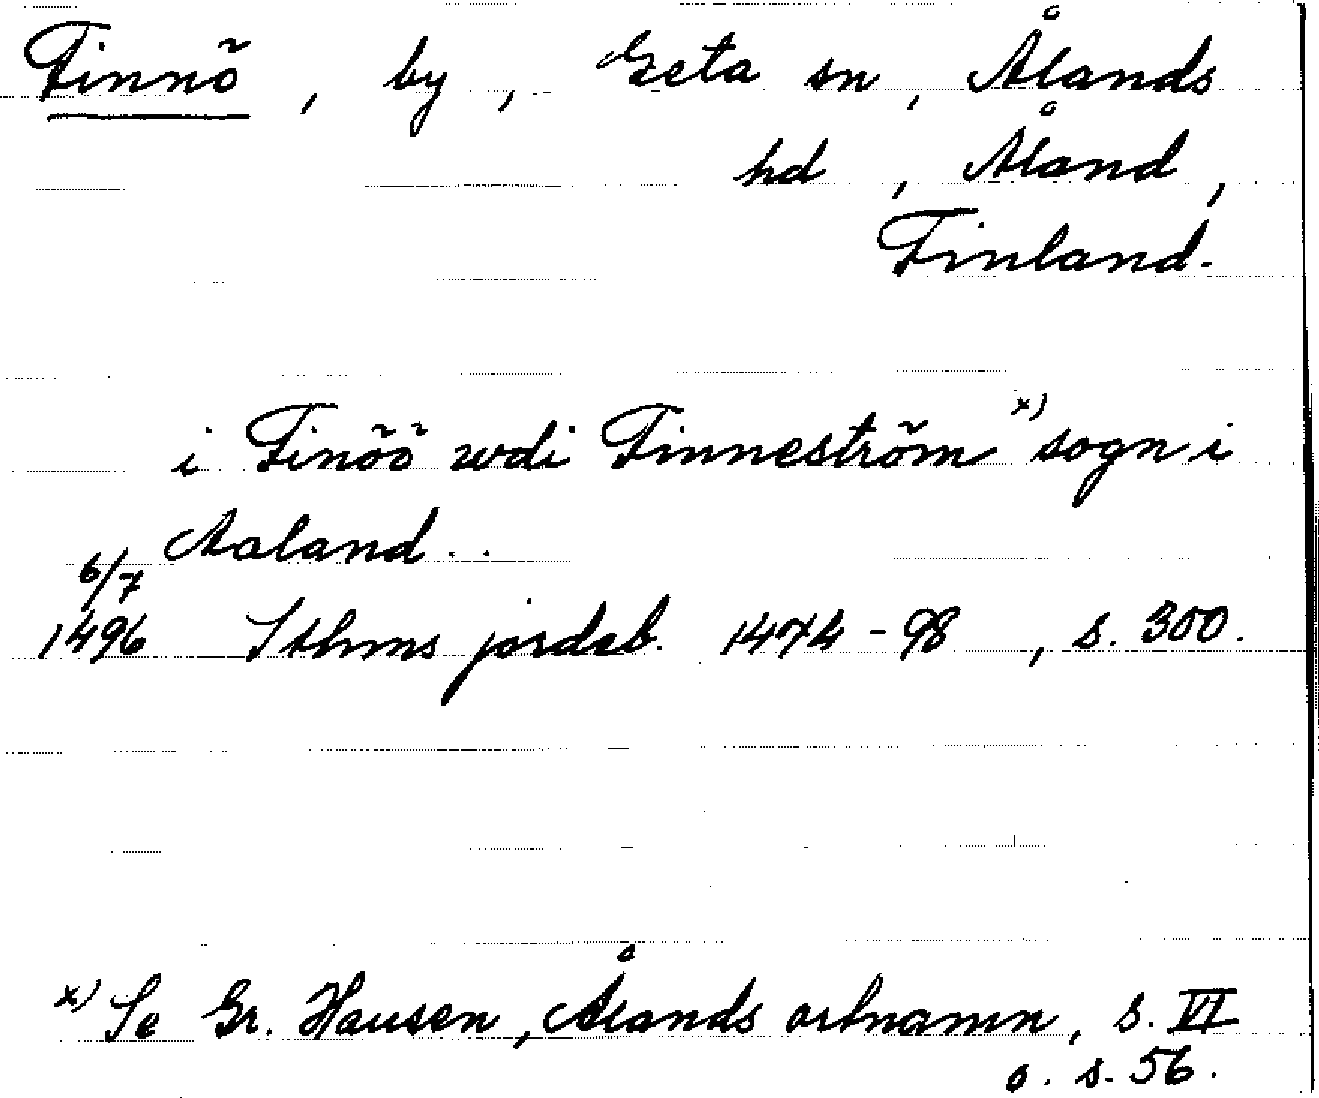 Finnö, by, Geta sn, Ålands
hd, Åland,
Finland.
i Finöö wdi Finneström x) sogn i
Aaland..
6/7
1496 Sthms jordeb. 1474-98, s. 300.
x) Se Gr. Hausen, Ålands ortnamn, s. VI
o. s. 56.